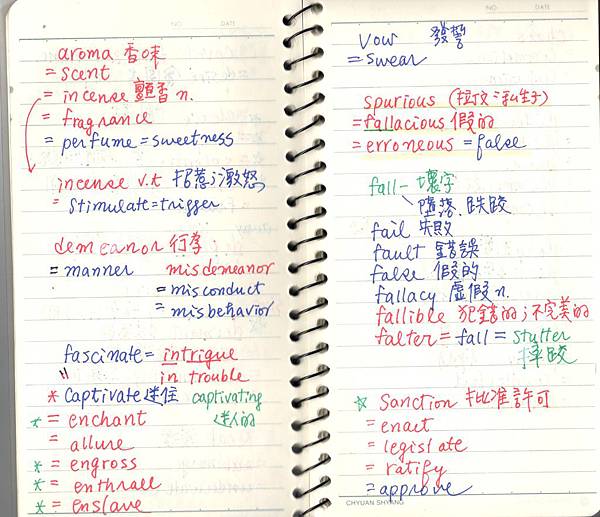 NO. DATE
aroma 香味
= scent
= incense 顫香 n.
= fragrance
= perfume = sweetness
incense v.t 招惹；激怒
= stimulate = trigger
demeanor 行爲
= manner misdemeanor
= misconduct
= misbehavior
fascinate = intrigue
" in trouble
* captivate 迷住 captivating
* = enchant 迷人的
= allure
* = engross
* = enthrall
* = enslave
NO. DATE
vow 發誓
= swear
spurious (拉丁文 私生子)
= fallacious 假的
= erroneous = false
fall- 壞字
墮落、跌跤
fail 失敗
fault 錯誤
false 假的
fallacy 虛假 n.
fallible 犯錯的；不完美的
falter = fall = stutter
摔跤
☆ sanction 批准許可
= enact
= legislate
= ratify
= approve
CHYUAN SHYANG